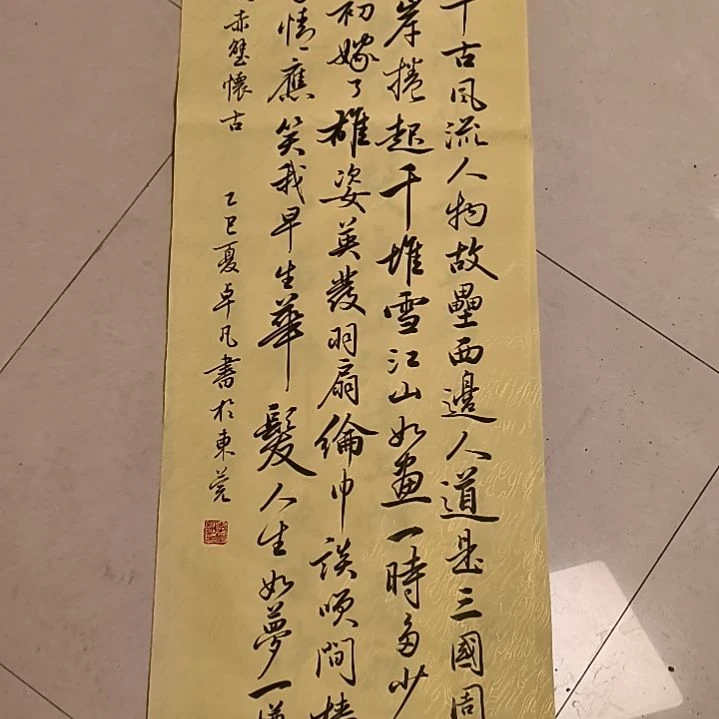 千古風流人物故壘西邊人道是三國周
岸捲起千堆雪江山如畫一時多少
初嫁了雄姿英發羽扇綸巾談笑間檣
情應笑我早生華髮人生如夢一
赤壁懷古 乙巳夏卓凡書於東莞